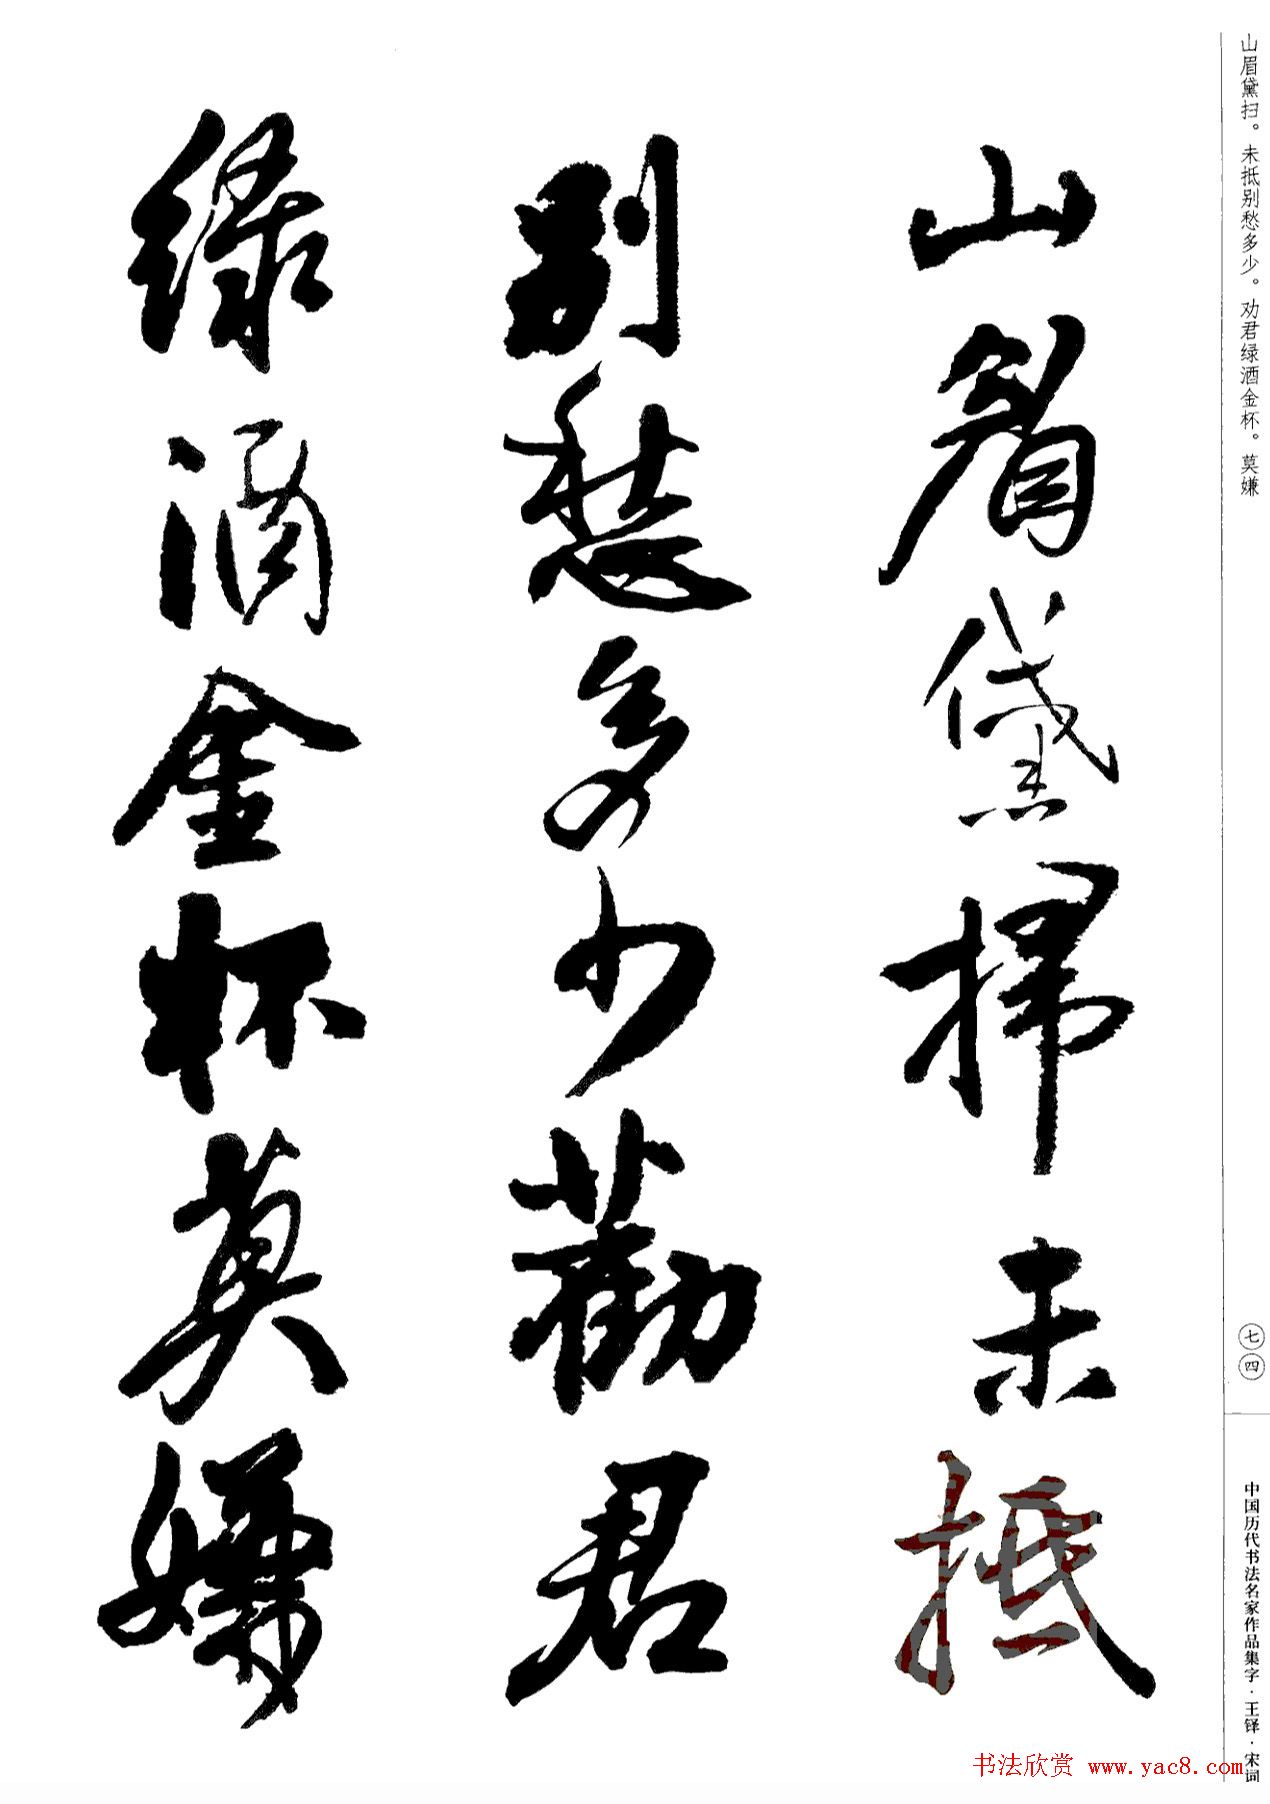 山眉黛掃未抵
别愁多少勸君
緑酒金杯莫嫌
山眉黛扫。未抵别愁多少。劝君绿酒金杯。莫嫌
七四
中国历代书法名家作品集字·王铎·宋词
书法欣赏 www.yac8.com